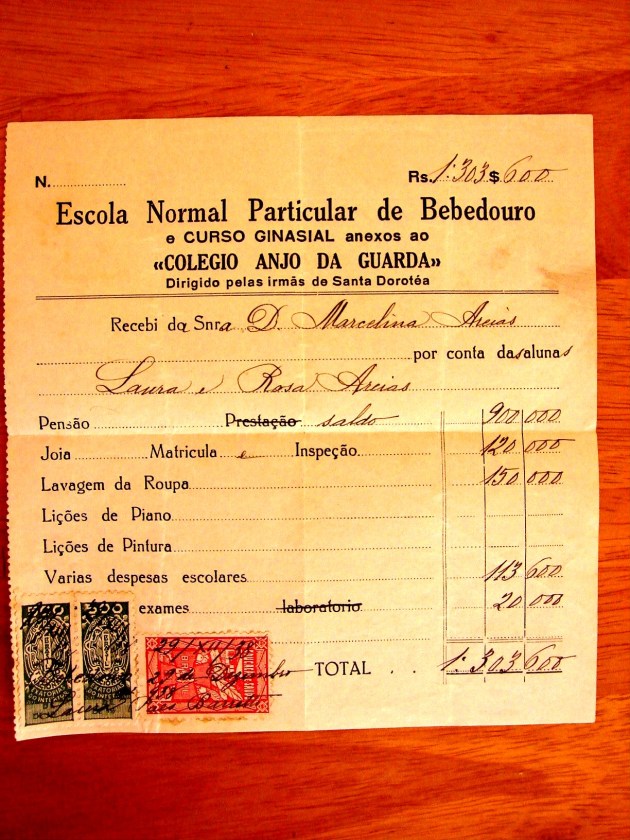 N. Rs. 1:303$600
Escola Normal Particular de Bebedouro
e CURSO GINASIAL anexos ao
«COLEGIO ANJO DA GUARDA»
Dirigido pelas irmãs de Santa Dorotéa
Recebi da Snra D. Marcelina Areias
por conta das alunas
Laura e Rosa Areias
Pensão Prestação saldo 900 000
Joia Matricula e Inspeção 120 000
Lavagem da Roupa 150 000
Lições de Piano
Lições de Pintura
Varias despesas escolares 113 600
exames laboratorio 20 000
29/XII/38
TOTAL . . 1:303 600
29 de Dezembro